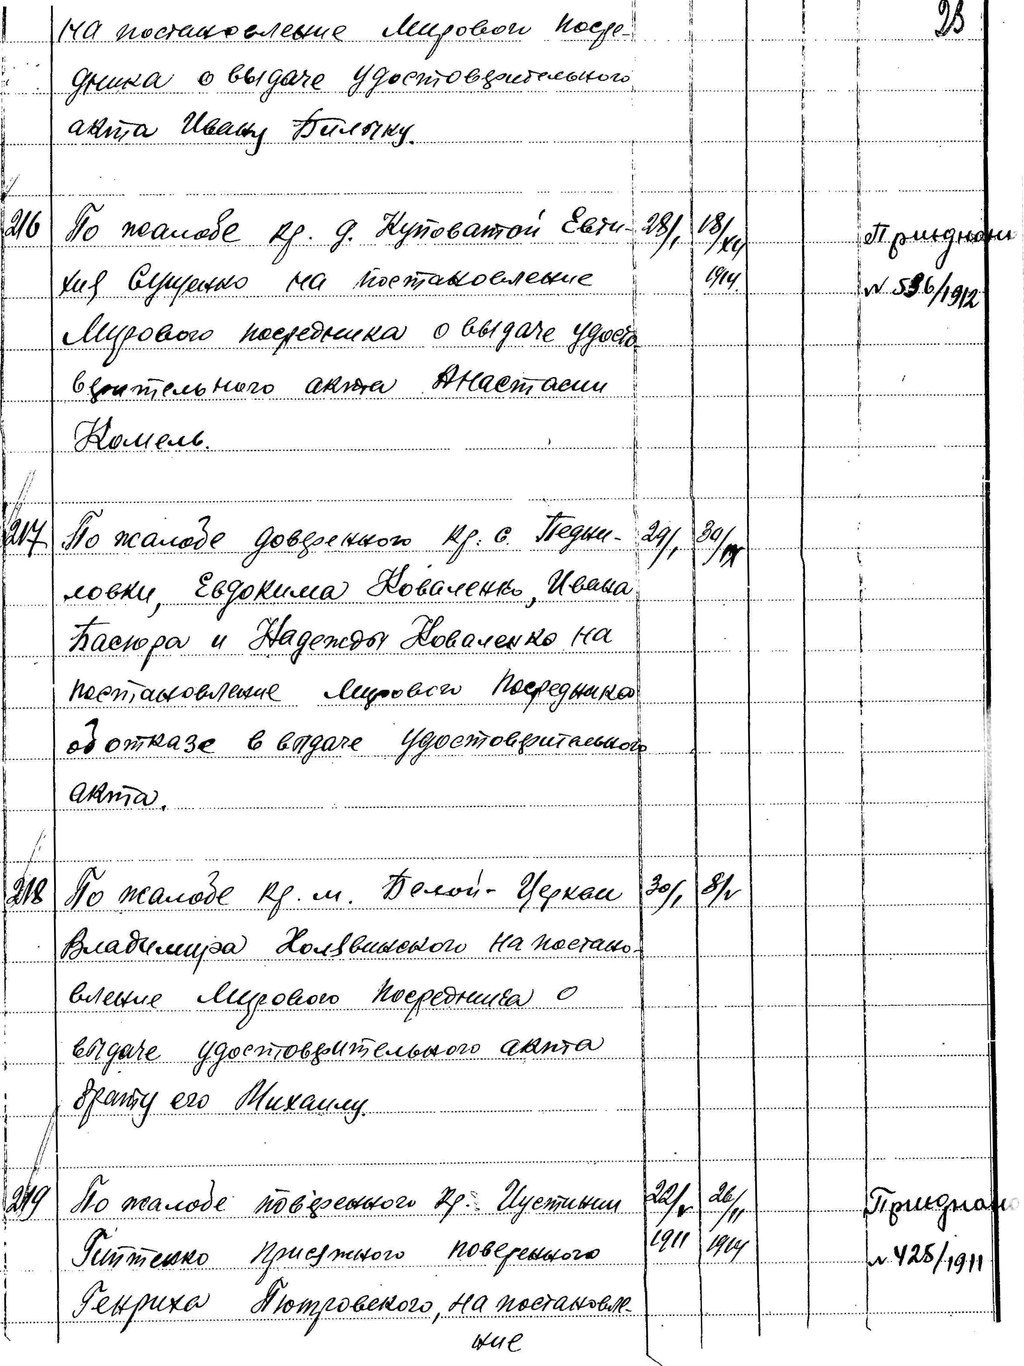 23
на постановление Мирового Посре-
дника о выдаче удостоверительного
акта Ивану Билыку.
216 По жалобе кр. д. Куповатой Евти- 28/I 18/XII Приєднано
хия Сущенко на постановление 1914 № 536/1912
Мирового посредника о выдаче удосто-
верительного акта Анастасии
Комель.
217 По жалобе доверенного кр. с. Педни- 29/I 30/IX
ловки, Евдокима Коваленко, Ивана
Басюра и Надежды Коваленко на
постановление Мирового Посредника
об отказе в выдаче удостоверительного
акта.
218 По жалобе кр. м. Белой-Церкви 30/I 8/V
Владимира Холявинского на постано-
вление Мирового Посредника о
выдаче удостоверительного акта
брату его Михаилу.
219 По жалобе поверенного кр. Иустинии 22/V 26/II Приєднано
присяжного поверенного 1911 1914 № 425/1911
Генриха Пютровского, на постановле-
ние